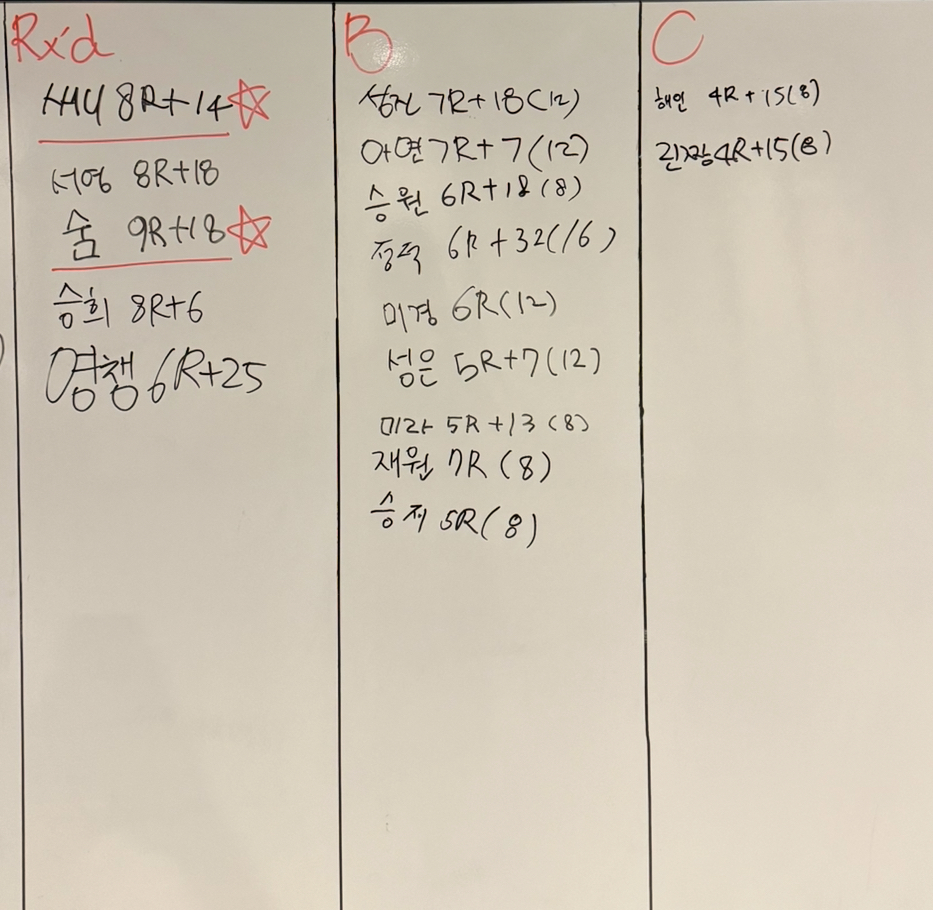 Rx'd
쌔니 8R+14
서영 8R+18
솜 9R+18
승희 8R+6
영챙 6R+25
B
성진 7R+18(12)
아면 7R+7(12)
승원 6R+18(8)
6R+32(16)
미경 6R(12)
성은 5R+7(12)
미라 5R+13(8)
재원 7R(8)
승지 5R(8)
C
해인 4R+15(8)
긴장 4R+15(8)